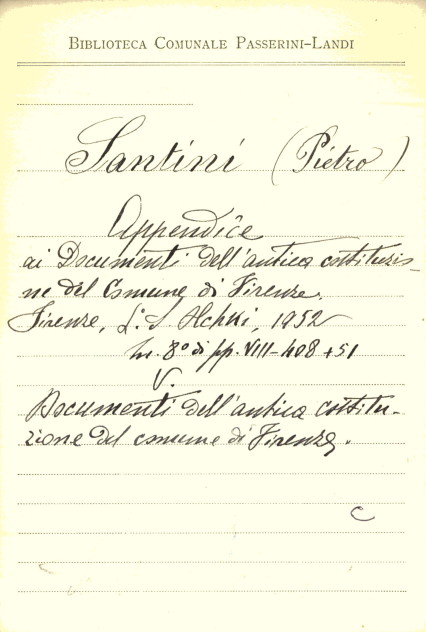 BIBLIOTECA COMUNALE PASSERINI-LANDI
Santini (Pietro)
Appendice
ai Documenti dell'antica costituzio-
ne del Comune di Firenze.
Firenze, L. S. Olchki, 1952
In. 8° di pp. VIII-408+51
V.
Documenti dell'antica costitu-
zione del comune di Firenze.
C